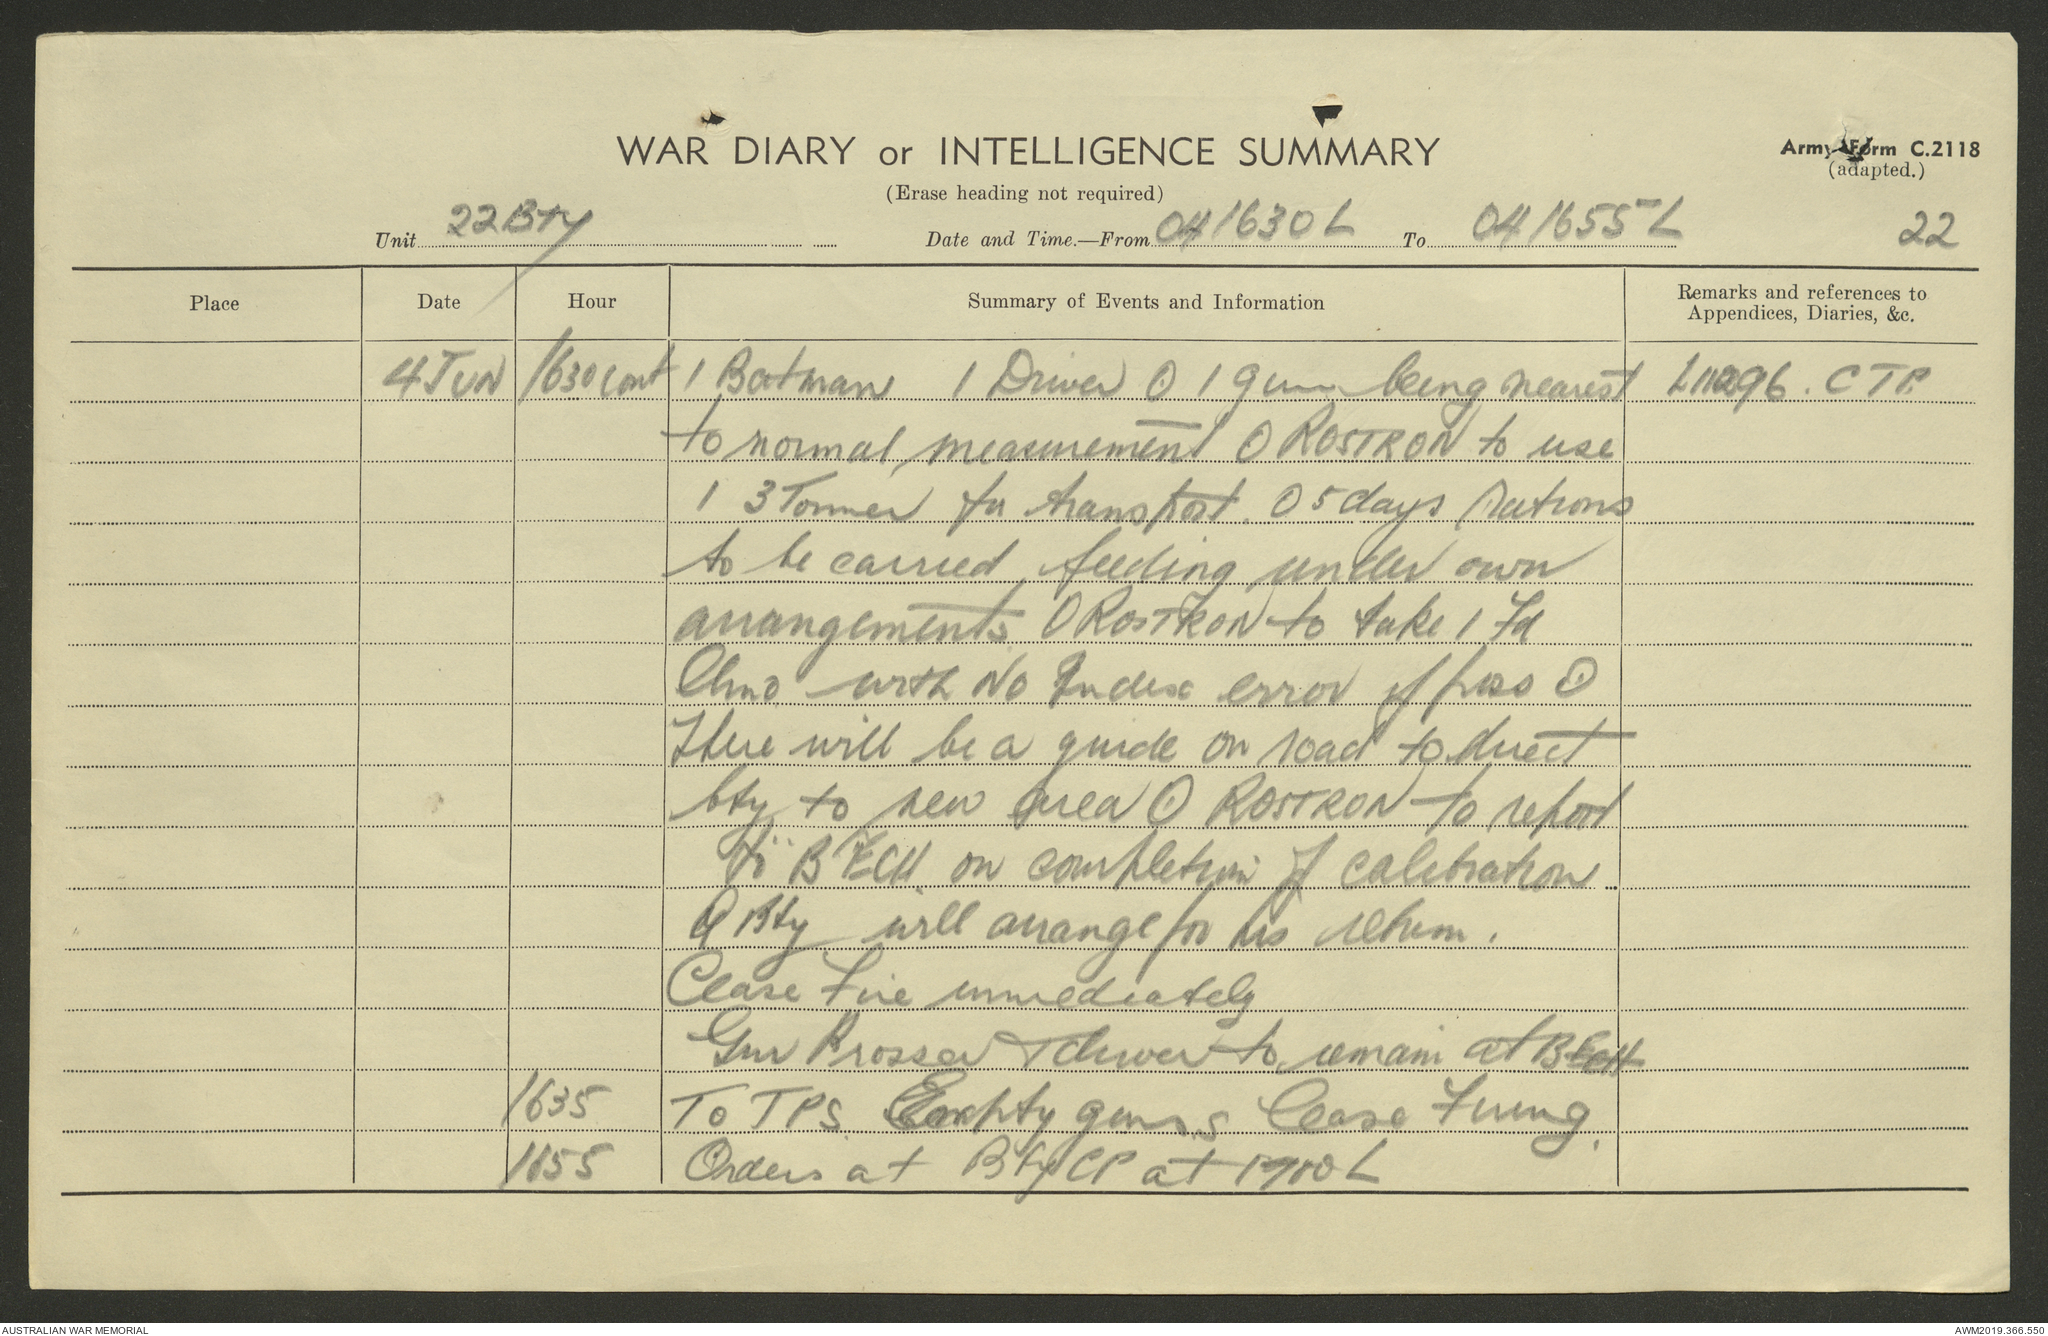 WAR DIARY or INTELLIGENCE SUMMARY
Army Form C.2118
(adapted.)
(Erase heading not required)
Unit 22 Bty Date and Time.—From 041630L To 041655L 22
Place Date Hour Summary of Events and Information Remarks and references to Appendices, Diaries, &c.
4 JUN 1630 cont 1 Batman 1 Driver ⊙ 1 gun being nearest CTP.
to normal measurement ⊙ ROSTRON to use
1 3 Tonner for transport. ⊙ 5 days rations
to be carried, feeding under own
arrangements ⊙ ROSTRON to take 1 Fd
Clino with No Index error if poss ⊙
There will be a guide on road to direct
bty to new area ⊙ ROSTRON to report
to B ECH. on completion of calibration
Q Bty will arrange for his return.
Cease Fire immediately
Gnr Prosser & driver to remain at B Ech
1635 To TPS. Empty guns Cease Firing.
1655 Orders at Bty CP at 1700L
AUSTRALIAN WAR MEMORIAL
AWM2019.366.550